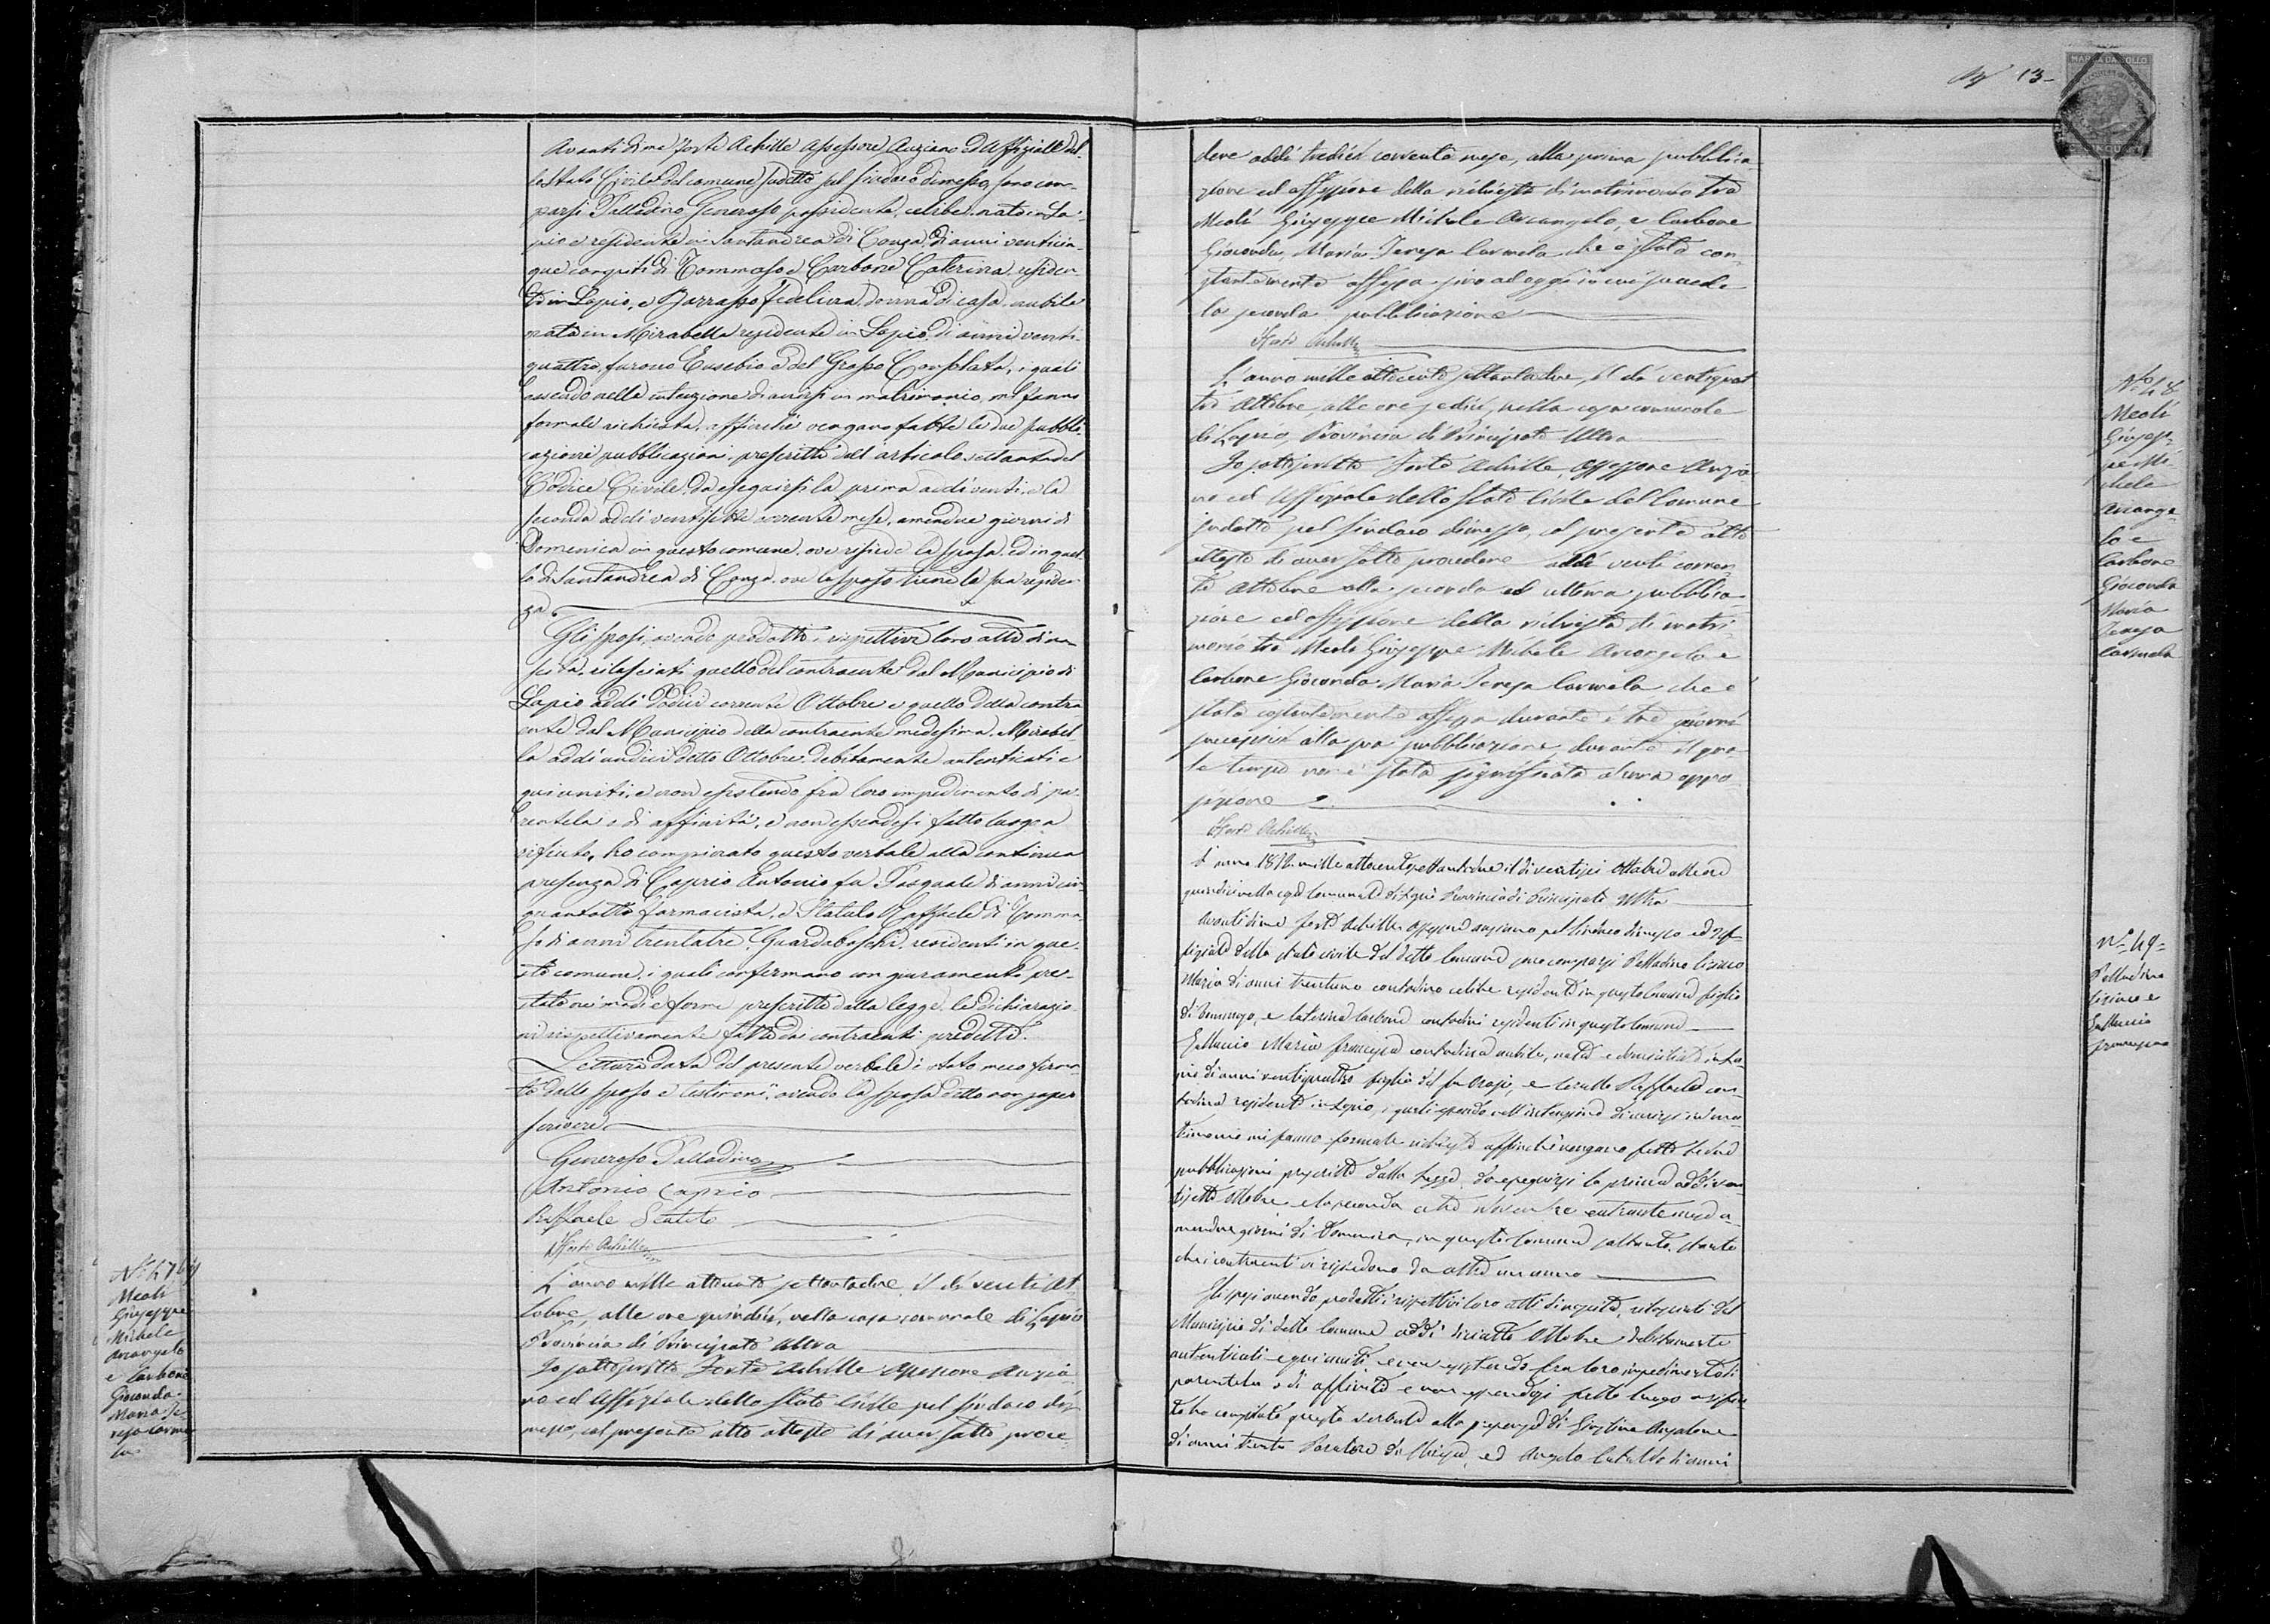 Avanti di me Forte Achille Assessore Anziano ed Uffiziale del-
lo Stato Civile del comune sudetto pel Sindaco dimesso, sono com-
parsi Palladino Generoso possidente, celibe nato in La-
pio e residente in Santandrea di Conza di anni venticin-
que compiti di Tommaso e Carbone Caterina residen-
ti in Lapio, e Barrasso Fedelina donna di casa nubile
nata in Mirabella residente in Lapio di anni venti-
quattro, furono Eusebio e del Grosso Consolata, i quali
essendo nella intenzione di unirsi in matrimonio, mi fanno
formale richiesta, affinché vengano fatte le due pubbli-
cazioni pubblicazioni prescritte dall'articolo settanta del
Codice Civile, da eseguirsi la prima addì venti, e la
seconda addì ventisette corrente mese, amendue giorni di
Domenica in questo comune, ove risiede la sposa, ed in quel-
lo di Santandrea di Conza, ove lo sposo tiene la sua residen-
za
Gli sposi, avendo prodotto i rispettivi loro atti di na-
scita, rilasciati quello del contraente dal Municipio di
Lapio addì dodici corrente Ottobre e quello della contra
ente dal Municipio della contraente medesima Mirabel-
la addì undici detto Ottobre, debitamente autenticati e
quiuniti, e non esistendo fra loro impedimento di pa-
rentela o di affinità, e non essendosi fatto luogo a
rifiuto, ho compiuto questo verbale alla continua
presenza di Caprio Antonio fu Pasquale di anni cin-
quantotto farmacista, e Statuto Raffaele di Tomma-
so di anni trentatre, Guardaboschi, residenti in que-
sto comune, i quali confermano con giuramento pre-
stato nei modi e forme prescritte dalla legge le dichiarazio
ni rispettivamente fatte dai contraenti predetti.
Lettura data del presente verbale è stato meco firma-
to dallo sposo e testimoni, avendo la sposa detto non saper
scrivere
Generoso Palladino
Antonio Caprio
Raffaele Statuto
Forte Achille
N° 47
Meoli
Giuseppe
Michele
Arcangelo
e Carbone
Gioconda
Maria Te-
resa Carme-
la
L'anno mille ottocento settantadue, il dì venti Ot-
tobre, alle ore quindici, nella casa comunale di Lapio
Provincia di Principato Ultra
Io sottoscritto Forte Achille Assessore Anzia-
no ed Uffiziale dello Stato Civile pel Sindaco di-
messo, col presente atto attesto di aver fatto proce-
13
MARCA DA BOLLO
dere addì tredici corrente mese, alla prima pubblica-
zione ed affissione della richiesta di matrimonio tra
Meoli Giuseppe Michele Arcangelo, e Carbone
Gioconda Maria Teresa Carmela che è stata con-
stantemente affissa sino ad oggi in cui succede
la seconda pubblicazione
Forte Achille
N° 48
Meoli
Giusep-
pe Mi-
chele
Arcange-
lo e
Carbone
Gioconda
Maria
Teresa
Carmela
L'anno mille ottocento settantadue, il dì ventiquat
tro Ottobre, alle ore sedici, nella casa comunale
di Lapio, Provincia di Principato Ultra
Io sottoscritto Forte Achille, Assessore Anzia-
no ed Uffiziale dello Stato Civile del Comune
sudetto pel Sindaco dimesso, col presente atto
attesto di aver fatto procedere addì venti corren-
te Ottobre alla seconda ed ultima pubblica-
zione ed affissione della richiesta di matri-
monio tra Meoli Giuseppe Michele Arcangelo e
Carbone Gioconda Maria Teresa Carmela che è
stata costantemente affissa durante i tre giorni
successivi alla sua pubblicazione, durante il qua-
le tempo non è stata significata alcuna oppo
sizione
Forte Achille
N° 49
Palladino
Ciriaco e
Galluccio
Francesca
L'anno 1872 mille ottocento settantadue il dì ventisei Ottobre alle ore
quindici nella casa Comunale di Lapio Provincia di Principato Ultra
Avanti di me Forte Achille Assessore anziano pel Sindaco dimesso ed Uf-
fiziale dello stato civile del detto Comune sono comparsi Palladino Ciriaco
Maria di anni trentuno contadino celibe residente in questo Comune figlio
di Domenico, e Caterina Carbone contadini residenti in questo Comune
Galluccio Maria Francesca contadina nubile, nata e domiciliata in La-
pio di anni ventiquattro figlia del fu Biagio, e Raffaela con-
tadina residente in Lapio, i quali essendo nell'intenzione di unirsi in ma-
trimonio mi fanno formale richiesta affinché vengano fatte le due
pubblicazioni prescritte dalla legge, da eseguirsi la prima addì ven-
tisette Ottobre e la seconda a tre Novembre entrante mese a-
mendue giorni di Domenica, in questo Comune soltanto, stante
che i contraenti vi risiedono da oltre un anno
Gli sposi avendo prodotti i rispettivi loro atti di nascita, rilasciati dal
Municipio di detto Comune addì diciotto Ottobre debitamente
autenticati e quiuniti, e non esistendo fra loro impedimento di
parentela o di affinità e non essendosi fatto luogo a rifiu-
to ho compilato questo verbale alla presenza di Giustino
di anni trenta di Chiesa, ed Angelo Cataldo di anni